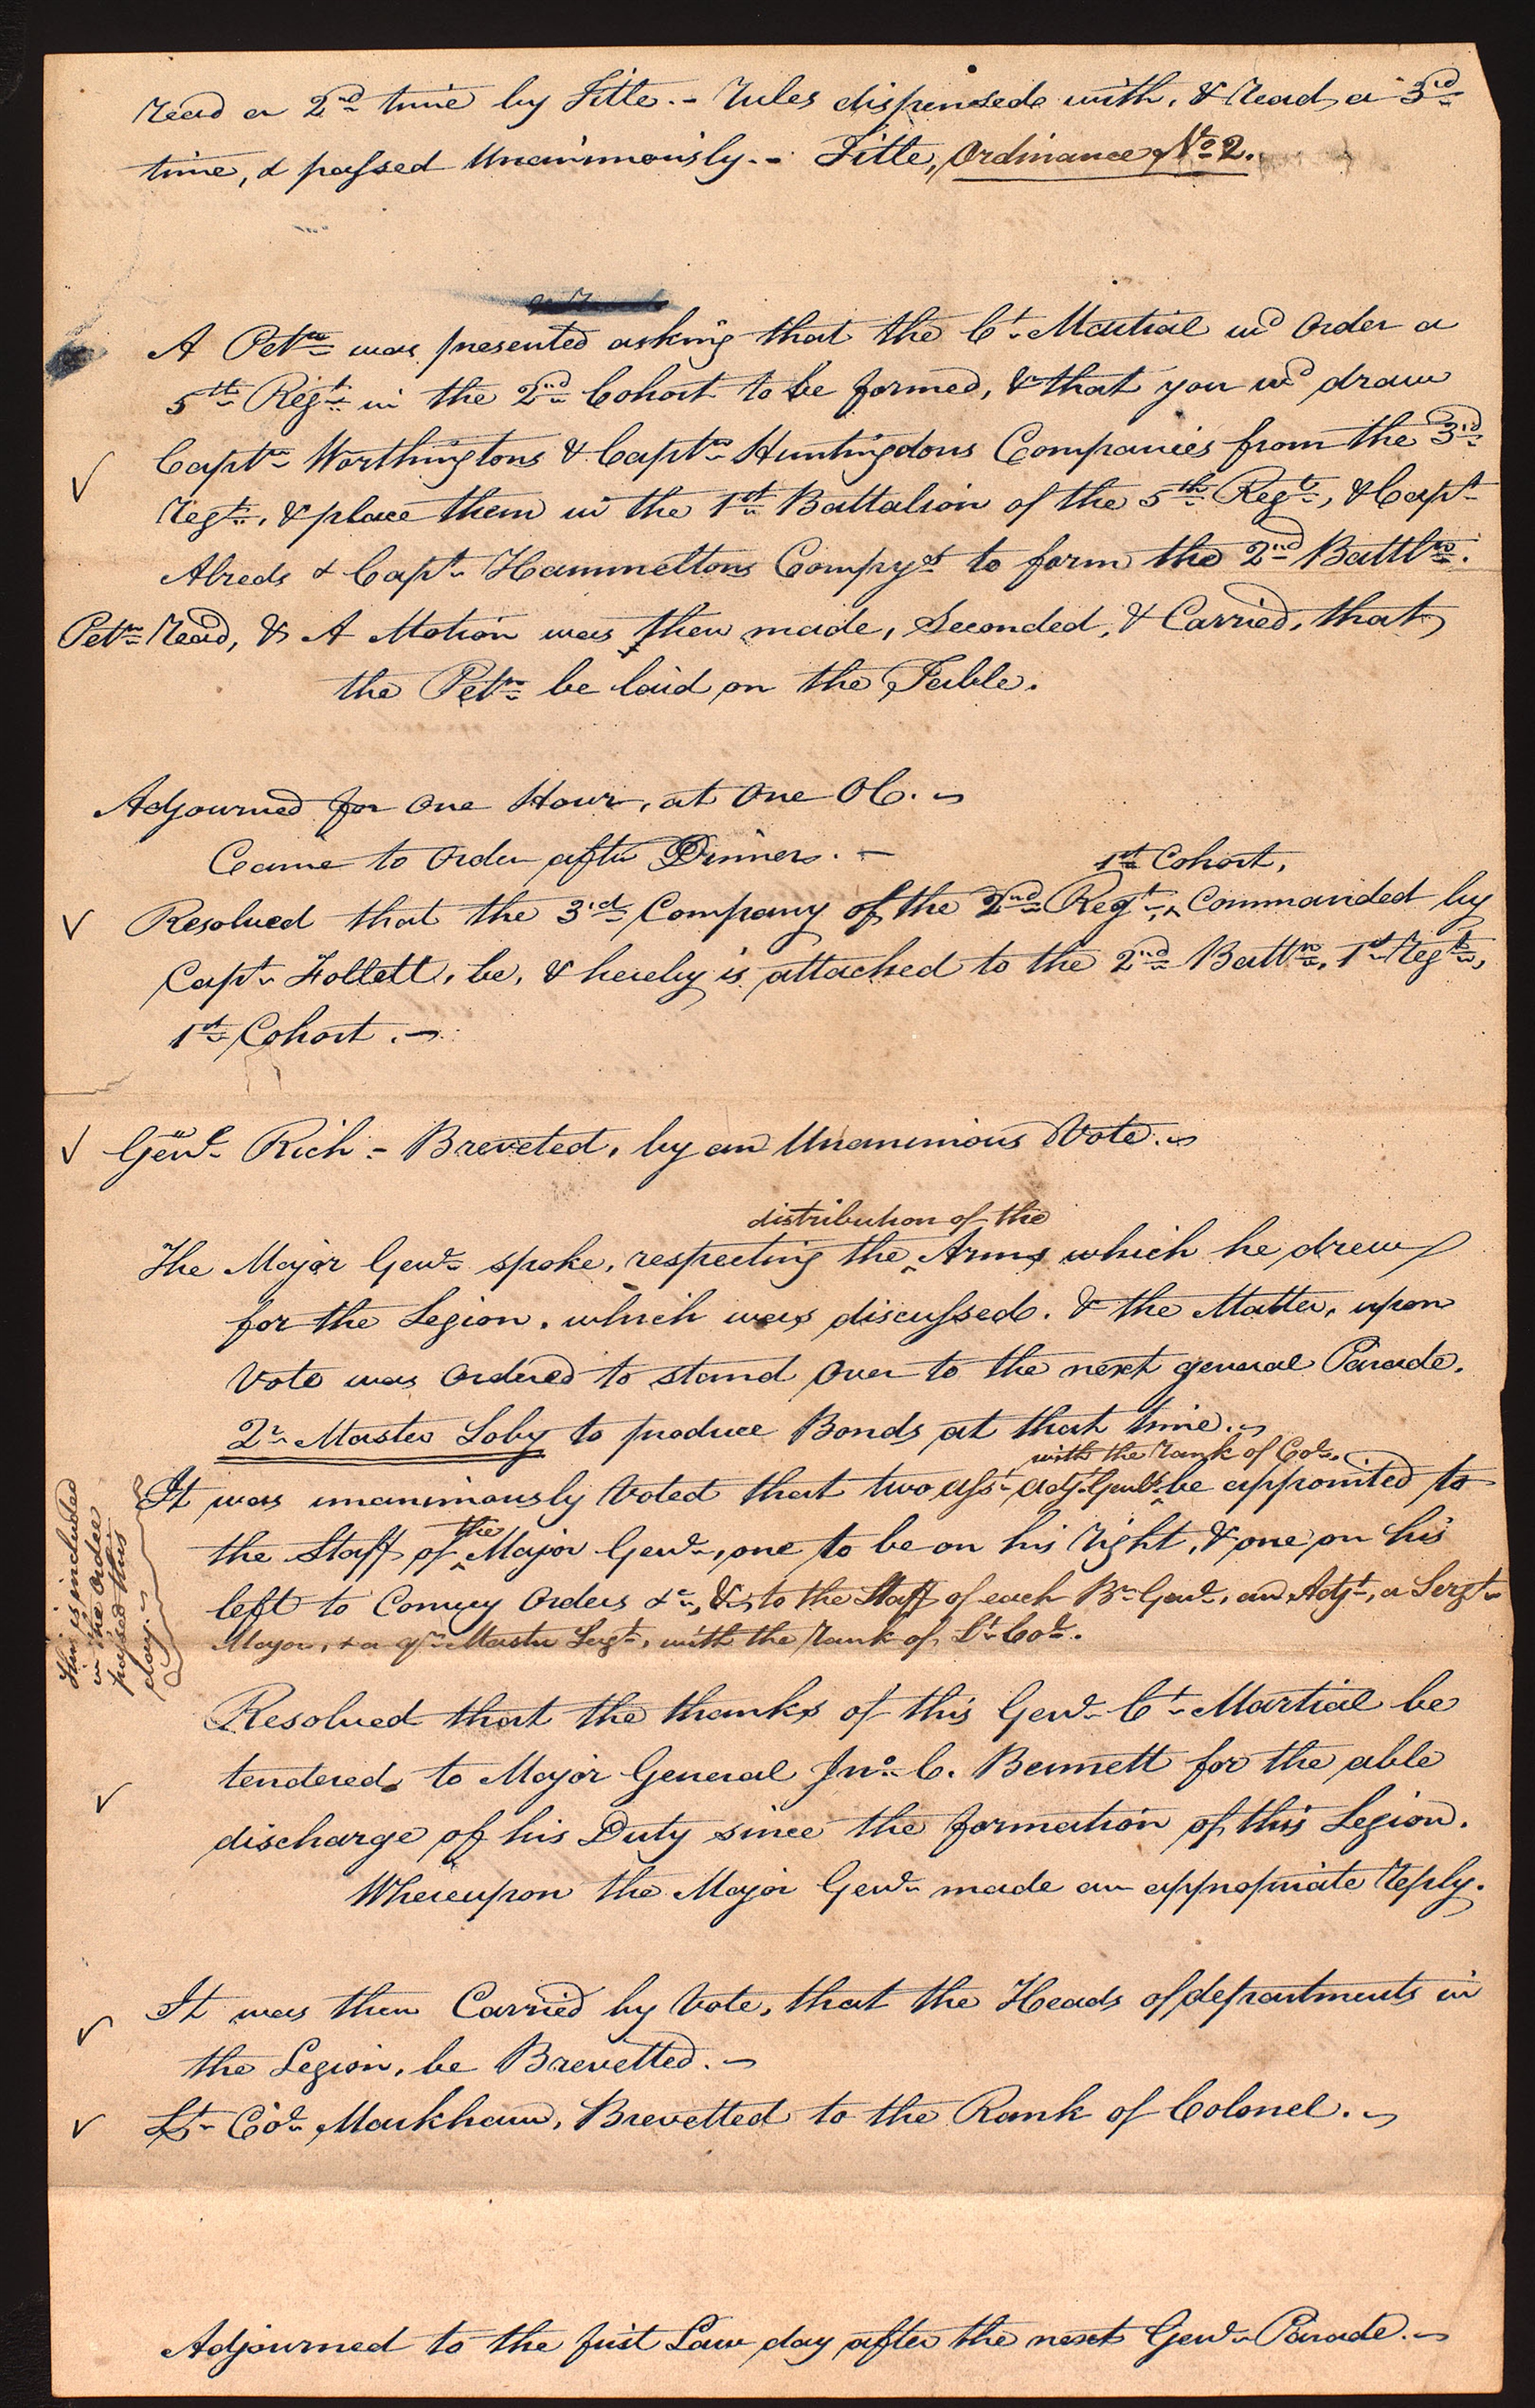 read a 2nd time by Title.- rules dispensed with, & read a 3rd
time, & passed Unanimously.- Title, Ordinance No 2.
A Petn was presented asking that the Ct Martial wd Order a
5th Regt in the 2nd Cohort to be formed, & that you wd draw
Captn Worthingtons & Captn Huntingdons Companies from the 3rd
regt, & place them in the 1st Battalion of the 5th Regt, & Capt
Alreds & Capt Hammeltons Compys to form the 2nd Battln.
Petn read, & A Motion was then made, Seconded, & Carried, that
the Petn be laid on the Table.
Adjourned for One Hour, at One OC.
Came to Order after Dinner.-
1st Cohort,
Resolved that the 3rd Company of the 2nd Regt, ^ Commanded by
Capt Follett, be, & hereby is attached to the 2nd Battn, 1st regt,
1st Cohort.-
Genl Rich - Breveted, by an Unanimous Vote.
distribution of the
The Major Genl spoke, respecting the ^ Arms which he drew
for the Legion, which was discussed. & the Matter, upon
Vote was Ordered to stand Over to the next general Parade.
Qr Master Loby to produce Bonds at that time.
with the rank of Col.
It was unanimously Voted that two asst adjt Genls ^ be appointed to
the
the Staff of ^ Major Genl, one to be on his right, & one on his
left to Convey Orders &c, & to the Staff of each Br Genl, an Adjt, a Sergt
Major, & a qr Master Sergt, with the rank of Lt Col.
This is included
in the Order
passed this
day
Resolved that the thanks of this Genl Ct Martial be
tendered to Major General Jno C. Bennett for the able
discharge of his Duty since the formation of this Legion.
Whereupon the Major Genl made an appropriate reply.
It was then Carried by Vote, that the Heads of departments in
the Legion, be Brevetted.-
Lt Col Markham, Brevetted to the Rank of Colonel.
Adjourned to the first Law day after the next Genl Parade.